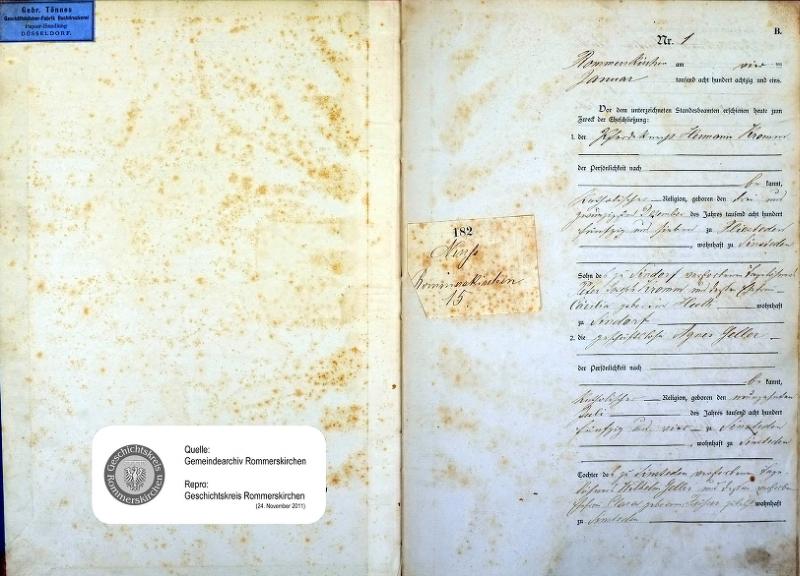 Gebr. Tönnes
Geschäftsbücher-Fabrik Buchdruckerei
Papier-Handlung
DÜSSELDORF.
Geschichtskreis Rommerskirchen
Quelle:
Gemeindearchiv Rommerskirchen
Repro:
Geschichtskreis Rommerskirchen
(24. November 2011)
182
Neuß
Rommerskirchen
15
B.
Nr. 1
Rommerskirchen am vier ten
Januar tausend acht hundert achtzig und eins.
Vor dem unterzeichneten Standesbeamten erschienen heute zum
Zweck der Eheschließung:
1. der Hermann
der Persönlichkeit nach
be kannt,
katholischer Religion, geboren den drei und
zwanzigsten Dezember des Jahres tausend acht hundert
fünfzig und sieben zu
, wohnhaft zu Sinsteden
Sohn des zu Sindorf verstorbenen
Peter Joseph und dessen
Cäcilia geborene wohnhaft
zu Sindorf
2. die geschäftslose Agnes Zeller
der Persönlichkeit nach
be kannt,
katholischer Religion, geboren den
Juli des Jahres tausend acht hundert
fünfzig und vier zu Sinsteden
, wohnhaft zu Sinsteden
Tochter des zu Sinsteden verstorbenen
Wilhelm Zeller und dessen verstorbenen
geborene wohnhaft
zu Sinsteden